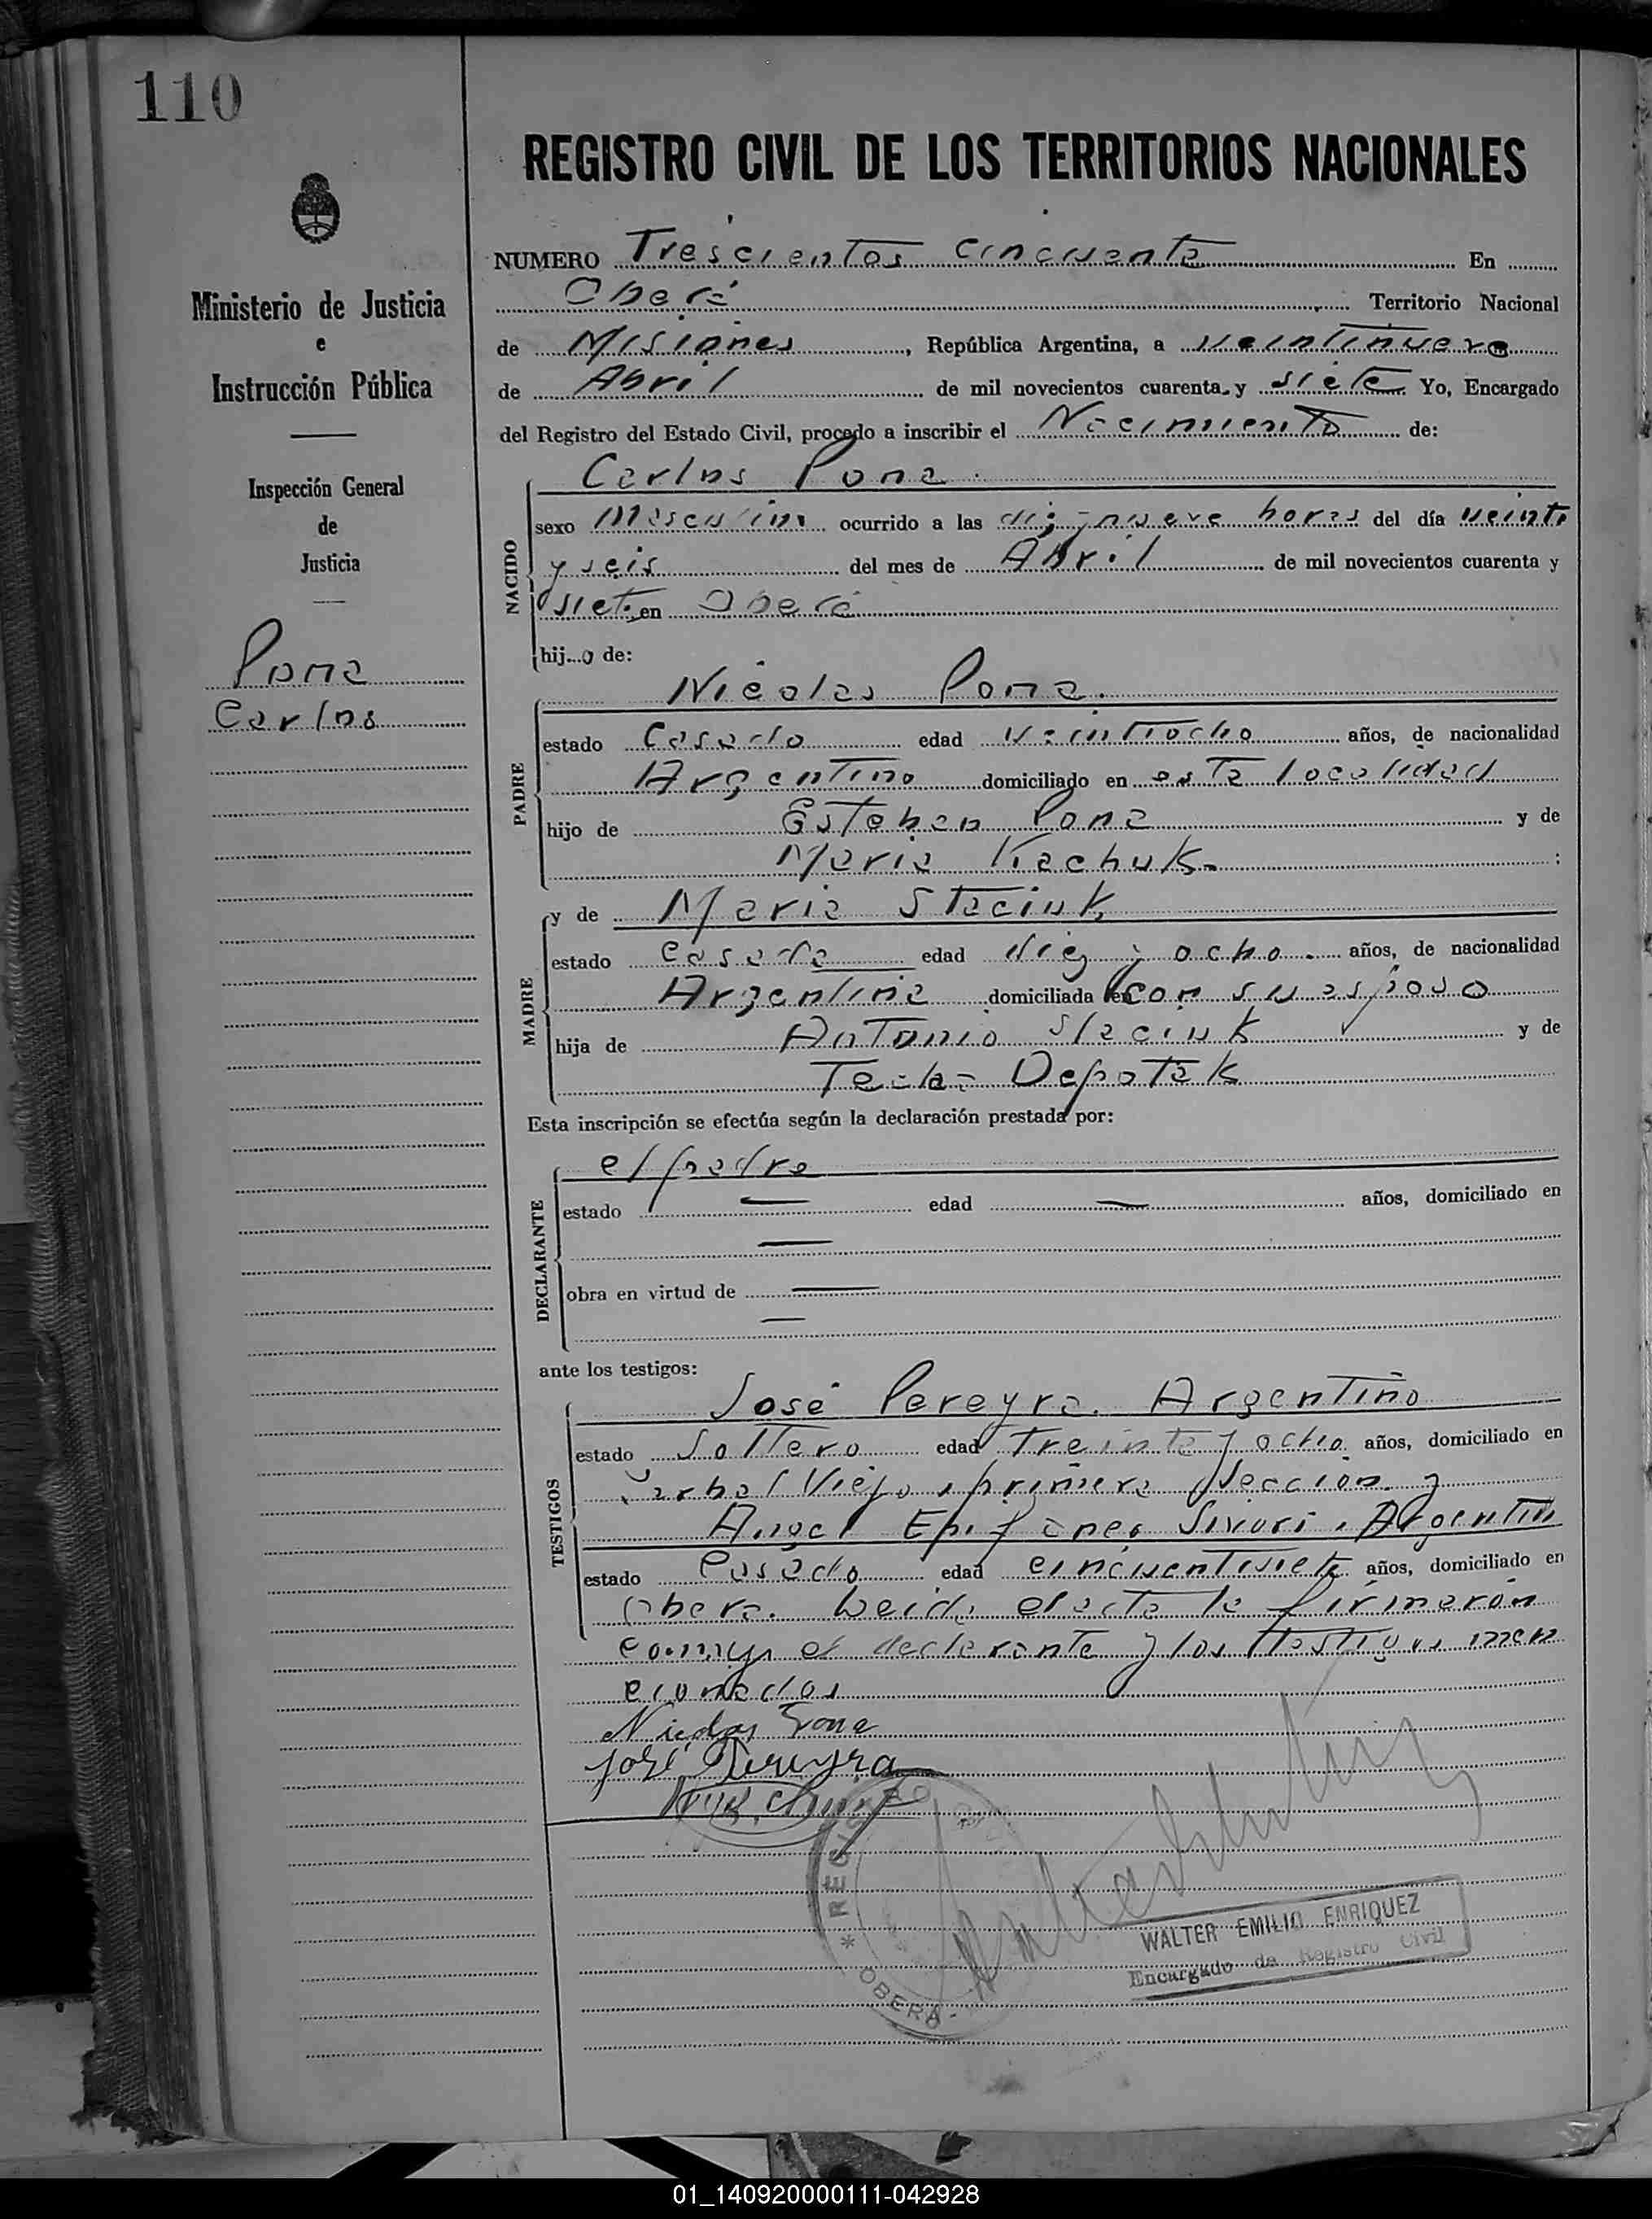 110
REGISTRO CIVIL DE LOS TERRITORIOS NACIONALES
Ministerio de Justicia
e
Instrucción Pública
Inspección General
de
Justicia
Pona
Carlos
NUMERO Trescientos cincuenta En
Oberá Territorio Nacional
de Misiones, República Argentina, a veintinueve
de Abril de mil novecientos cuarenta y siete Yo, Encargado
del Registro del Estado Civil, procedo a inscribir el Nacimiento de:
NACIDO
Carlos Pona
sexo Masculino ocurrido a las diez y nueve horas del día veinti
y seis del mes de Abril de mil novecientos cuarenta y
siete en Oberá
hijo de:
PADRE
Nicolas Pona.
estado Casado edad veintiocho años, de nacionalidad
Argentino domiciliado en esta localidad
hijo de Esteban Pona y de
Maria Kachuk.
MADRE
y de Maria Staciuk
estado casada edad diez y ocho. años, de nacionalidad
Argentina domiciliada en con su esposo
hija de Antonio Staciuk y de
Tecla Depotak
Esta inscripción se efectúa según la declaración prestada por:
DECLARANTE
el padre
estado — edad — años, domiciliado en
—
obra en virtud de —
—
ante los testigos:
TESTIGOS
José Pereyra. Argentino
estado Soltero edad treinta y ocho años, domiciliado en
Yerbal Viejo, primera sección. y
Angel Epifaneo Argentin
estado Casado edad cincuentisiete años, domiciliado en
Obera. Leida el acta la firmaron
conmigo el declarante y los testigos men
cionados
Nicolas Pona
José Pereyra
REGISTRO
* OBERÁ -
WALTER EMILIO ENRIQUEZ
Encargado de Registro Civil
01_140920000111-042928